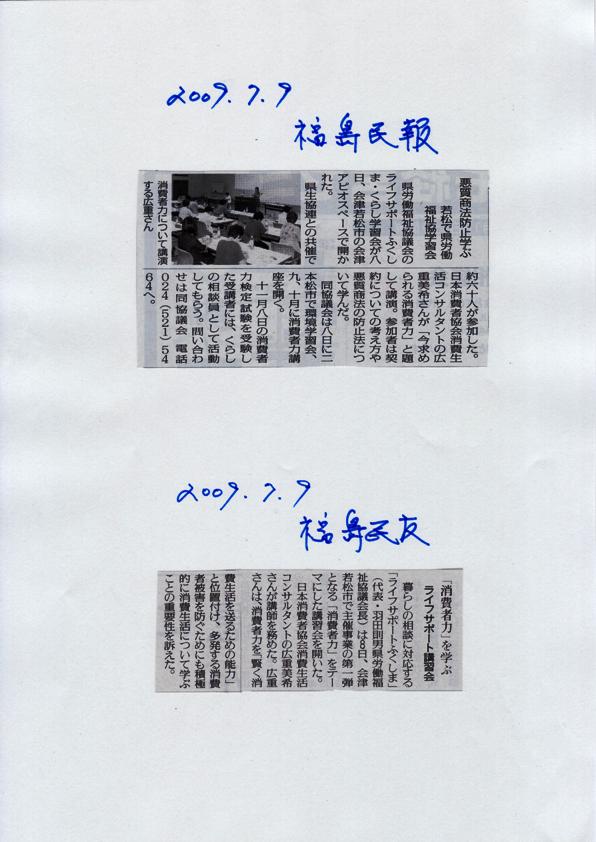 2009.7.9
福島民報
悪質商法防止学ぶ
若松で県労働
福祉協学習会
県労働福祉協議会の
ライフサポートふくし
ま・くらし学習会が八
日、会津若松市の会津
アピオスペースで開か
れた。
県生協連との共催で
消費者力について講演
する広重さん
約六十人が参加した。
日本消費者協会消費生
活コンサルタントの広
重美希さんが「今求め
られる消費者力」と題
して講演。参加者は契
約についての考え方や
悪質商法の防止法につ
いて学んだ。
同協議会は八日に二
本松市で環境学習会、
九、十月に消費者力講
座を開く。
十一月八日の消費者
力検定試験を受験し
た受講者には、くらし
の相談員として活動
してもらう。問い合わ
せは同協議会 電話
024(521)54
64へ。
2009.7.9
福島民友
「消費者力」を学ぶ
ライフサポート講習会
暮らしの相談に対応する
「ライフサポートふくしま」
(代表・羽田則男県労働福
祉協議会長)は8日、会津
若松市で主催事業の第一弾
となる「消費者力」をテー
マにした講習会を開いた。
日本消費者協会消費生活
コンサルタントの広重美希
さんが講師を務めた。広重
さんは、消費者力を「賢く消
費生活を送るための能力」
と位置付け、多発する消費
者被害を防ぐためにも積極
的に消費生活について学ぶ
ことの重要性を訴えた。